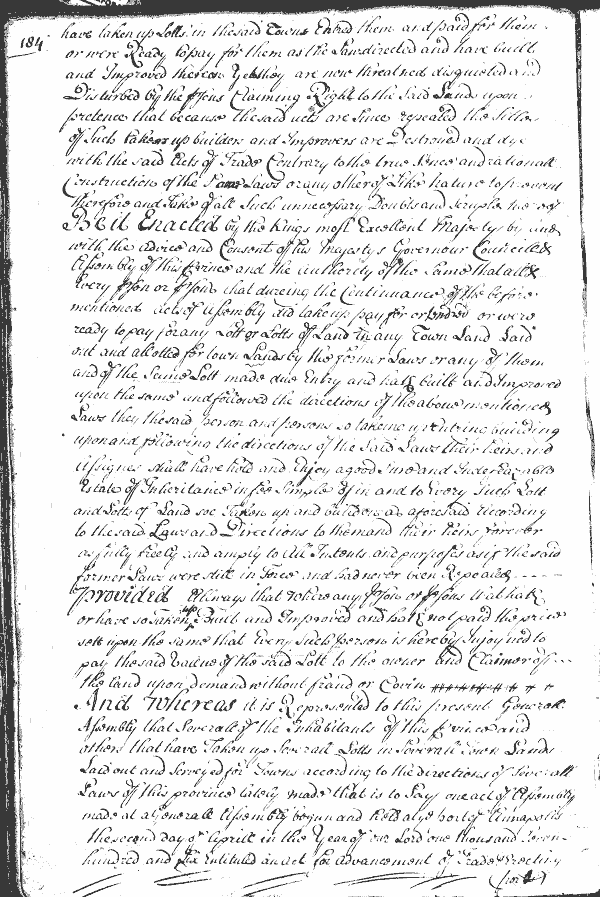 184
have taken up Lotts in the said Towns Entred them and paid for them
or were Ready to pay for them as the Law directed and have built
and Improved thereon Yet they are now threatned disquieted and
Disturbed by the psons Claiming Right to the Said Lands upon
pretence that because the said acts are Since repealed the Titles
of Such takers up builders and Improvers are Destroyed and dye
with the said Acts of Trade Contrary to the true Sence and rationall
Construction of the Same Laws or any other of Like Nature to prevent
therefore and take of all Such unnecessary Doubts and Scruples
Be it Enacted by the Kings most Excellent Majesty by and
with the advice and Consent of his Majestys Governour Councill &
Assembly of this Province and the authority of the Same that all &
Every pson or psons that dureing the Continuance of the before
mentioned Acts of Assembly did take up pay for or tendred or were
ready to pay for any Lott or Lotts of Land in any Town Land Laid
out and allotted for Town Lands by the former Laws or any of them
and of the Same Lott made due Entry and hath built and Improved
upon the same and followed the directions of the above mentioned
Laws they the said person and persons so takeing up entring building
upon and following the directions of the Said Laws their heirs and
Assignes shall have hold and Enjoy a good Sure and Indefeazable
Estate of Inheritance in fee Simple of in and to Every Such Lott
and Lotts of Land soe Taken up and builded as aforesaid According
to the said Laws and Directions to them and their heirs forever
as fully freely and amply to All Intents and purposes as if the said
former Laws were still in Force and had never been Repealed
Provided Allways that where any pson or psons that hath
or have so Taken up Built and Improved and hath not paid the price
sett upon the same that Every such person is hereby Injoyned to
pay the said Value of the said Lott to the owner and Claimer of
the land upon demand without fraud or Covin
And Whereas it is Represented to this present Generall
Assembly that Severall of the Inhabitants of this Province and
others that have Taken up Severall Lotts in Severall Town Lands
Laid out and Surveyed for Towns according to the directions of Severall
Laws of this province lately made that is to Say one act of Assembly
made at a Generall Assembly begun and held at ye port of Annapolis
the second day of Aprill in the Year of our Lord one thousand Seven
hundred and Six Entituled an act for advancement of Trade Erecting